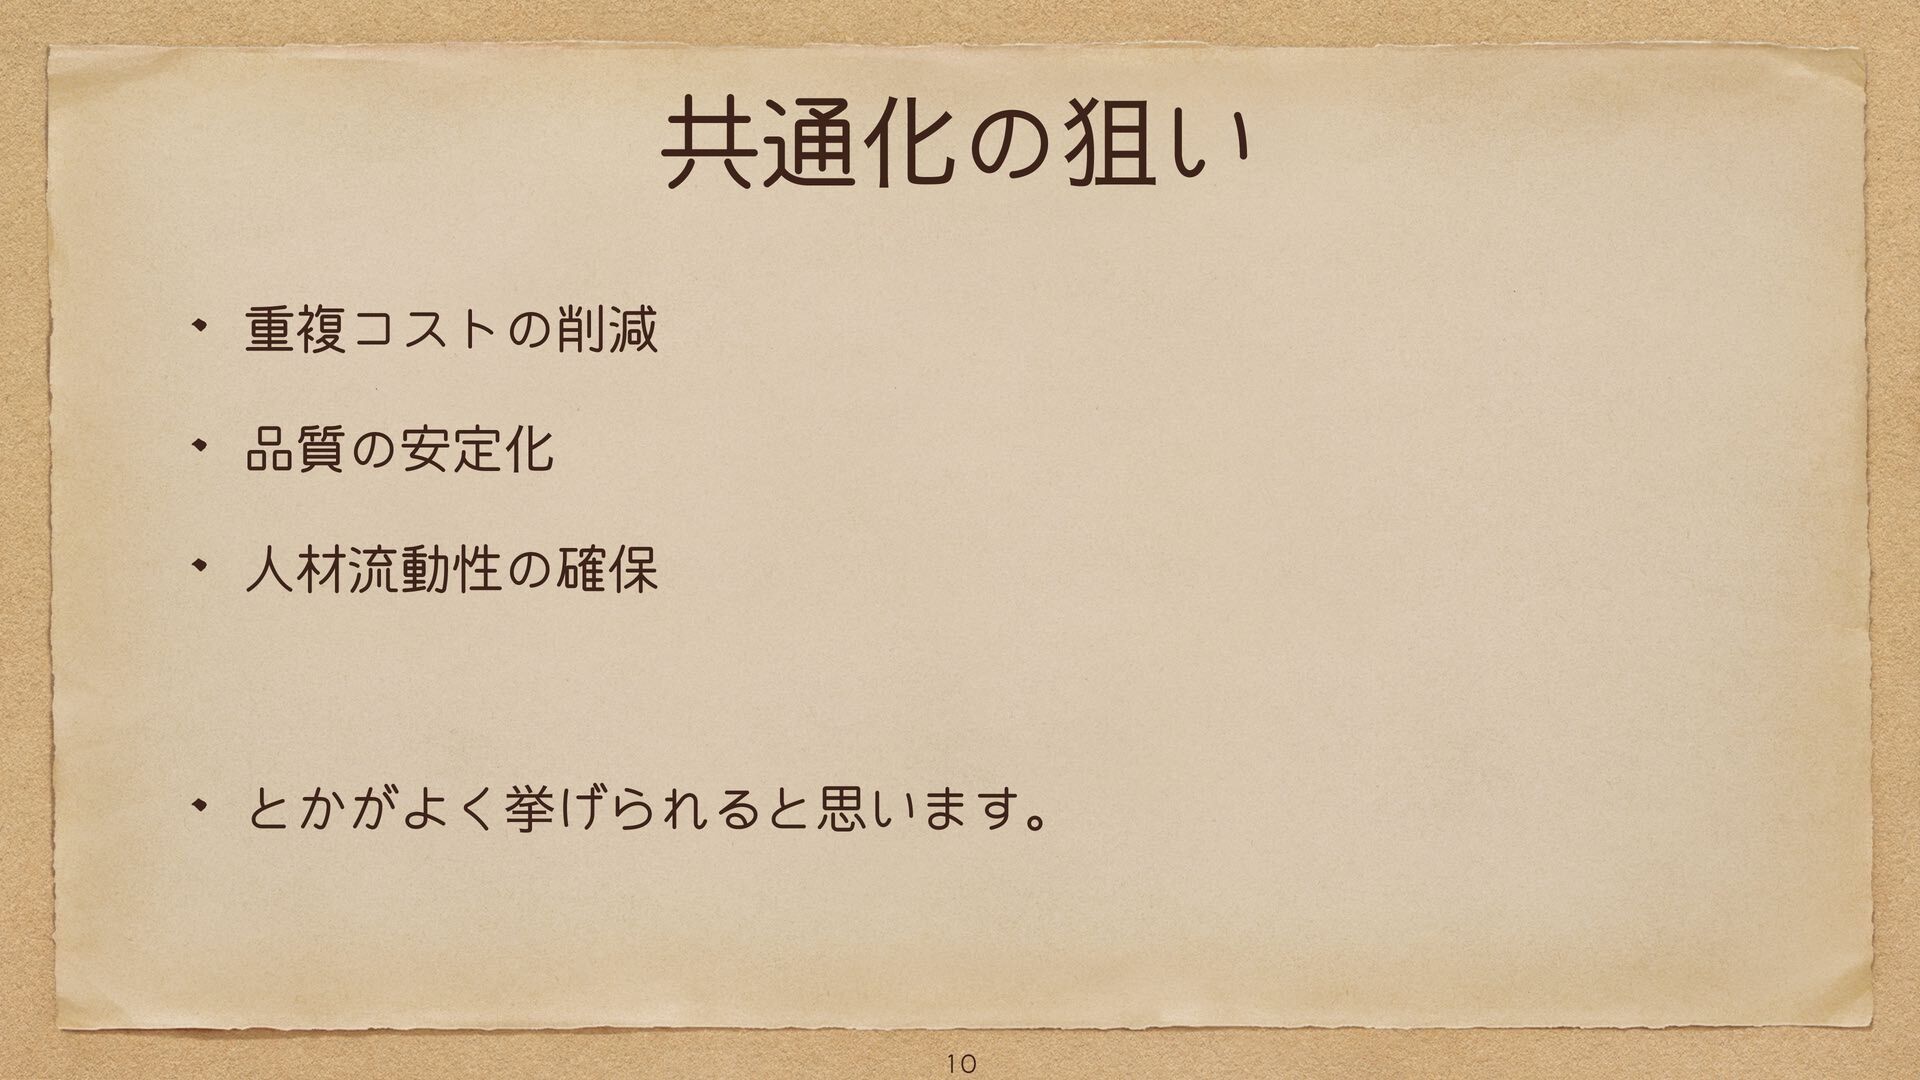 共通化の狙い
・ 重複コストの削減
・ 品質の安定化
・ 人材流動性の確保
・ とかがよく挙げられると思います。
10